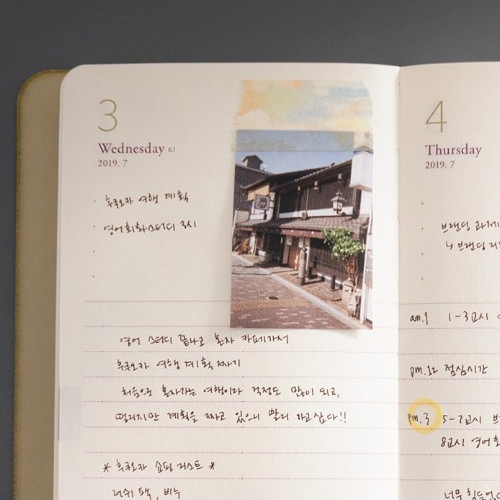 3
Wednesday 6.1
2019. 7
· 후쿠오카 여행 계획
· 영어회화스터디 3시
영어 스터디 끝나고 혼자 카페가서
후쿠오카 여행 계획 짜기
처음으로 혼자가는 여행이라 걱정도 많이 되고,
떨리지만 계획을 짜고 있으니 빨리 가고싶다!!
* 후쿠오카 쇼핑 리스트 *
퍼쉬 팩, 비누
4
Thursday
2019. 7
브랜딩 과제
am.9 1-3교시
pm.12 점심시간
pm.3 5-7교시
8교시 영어회
너무 힘들어